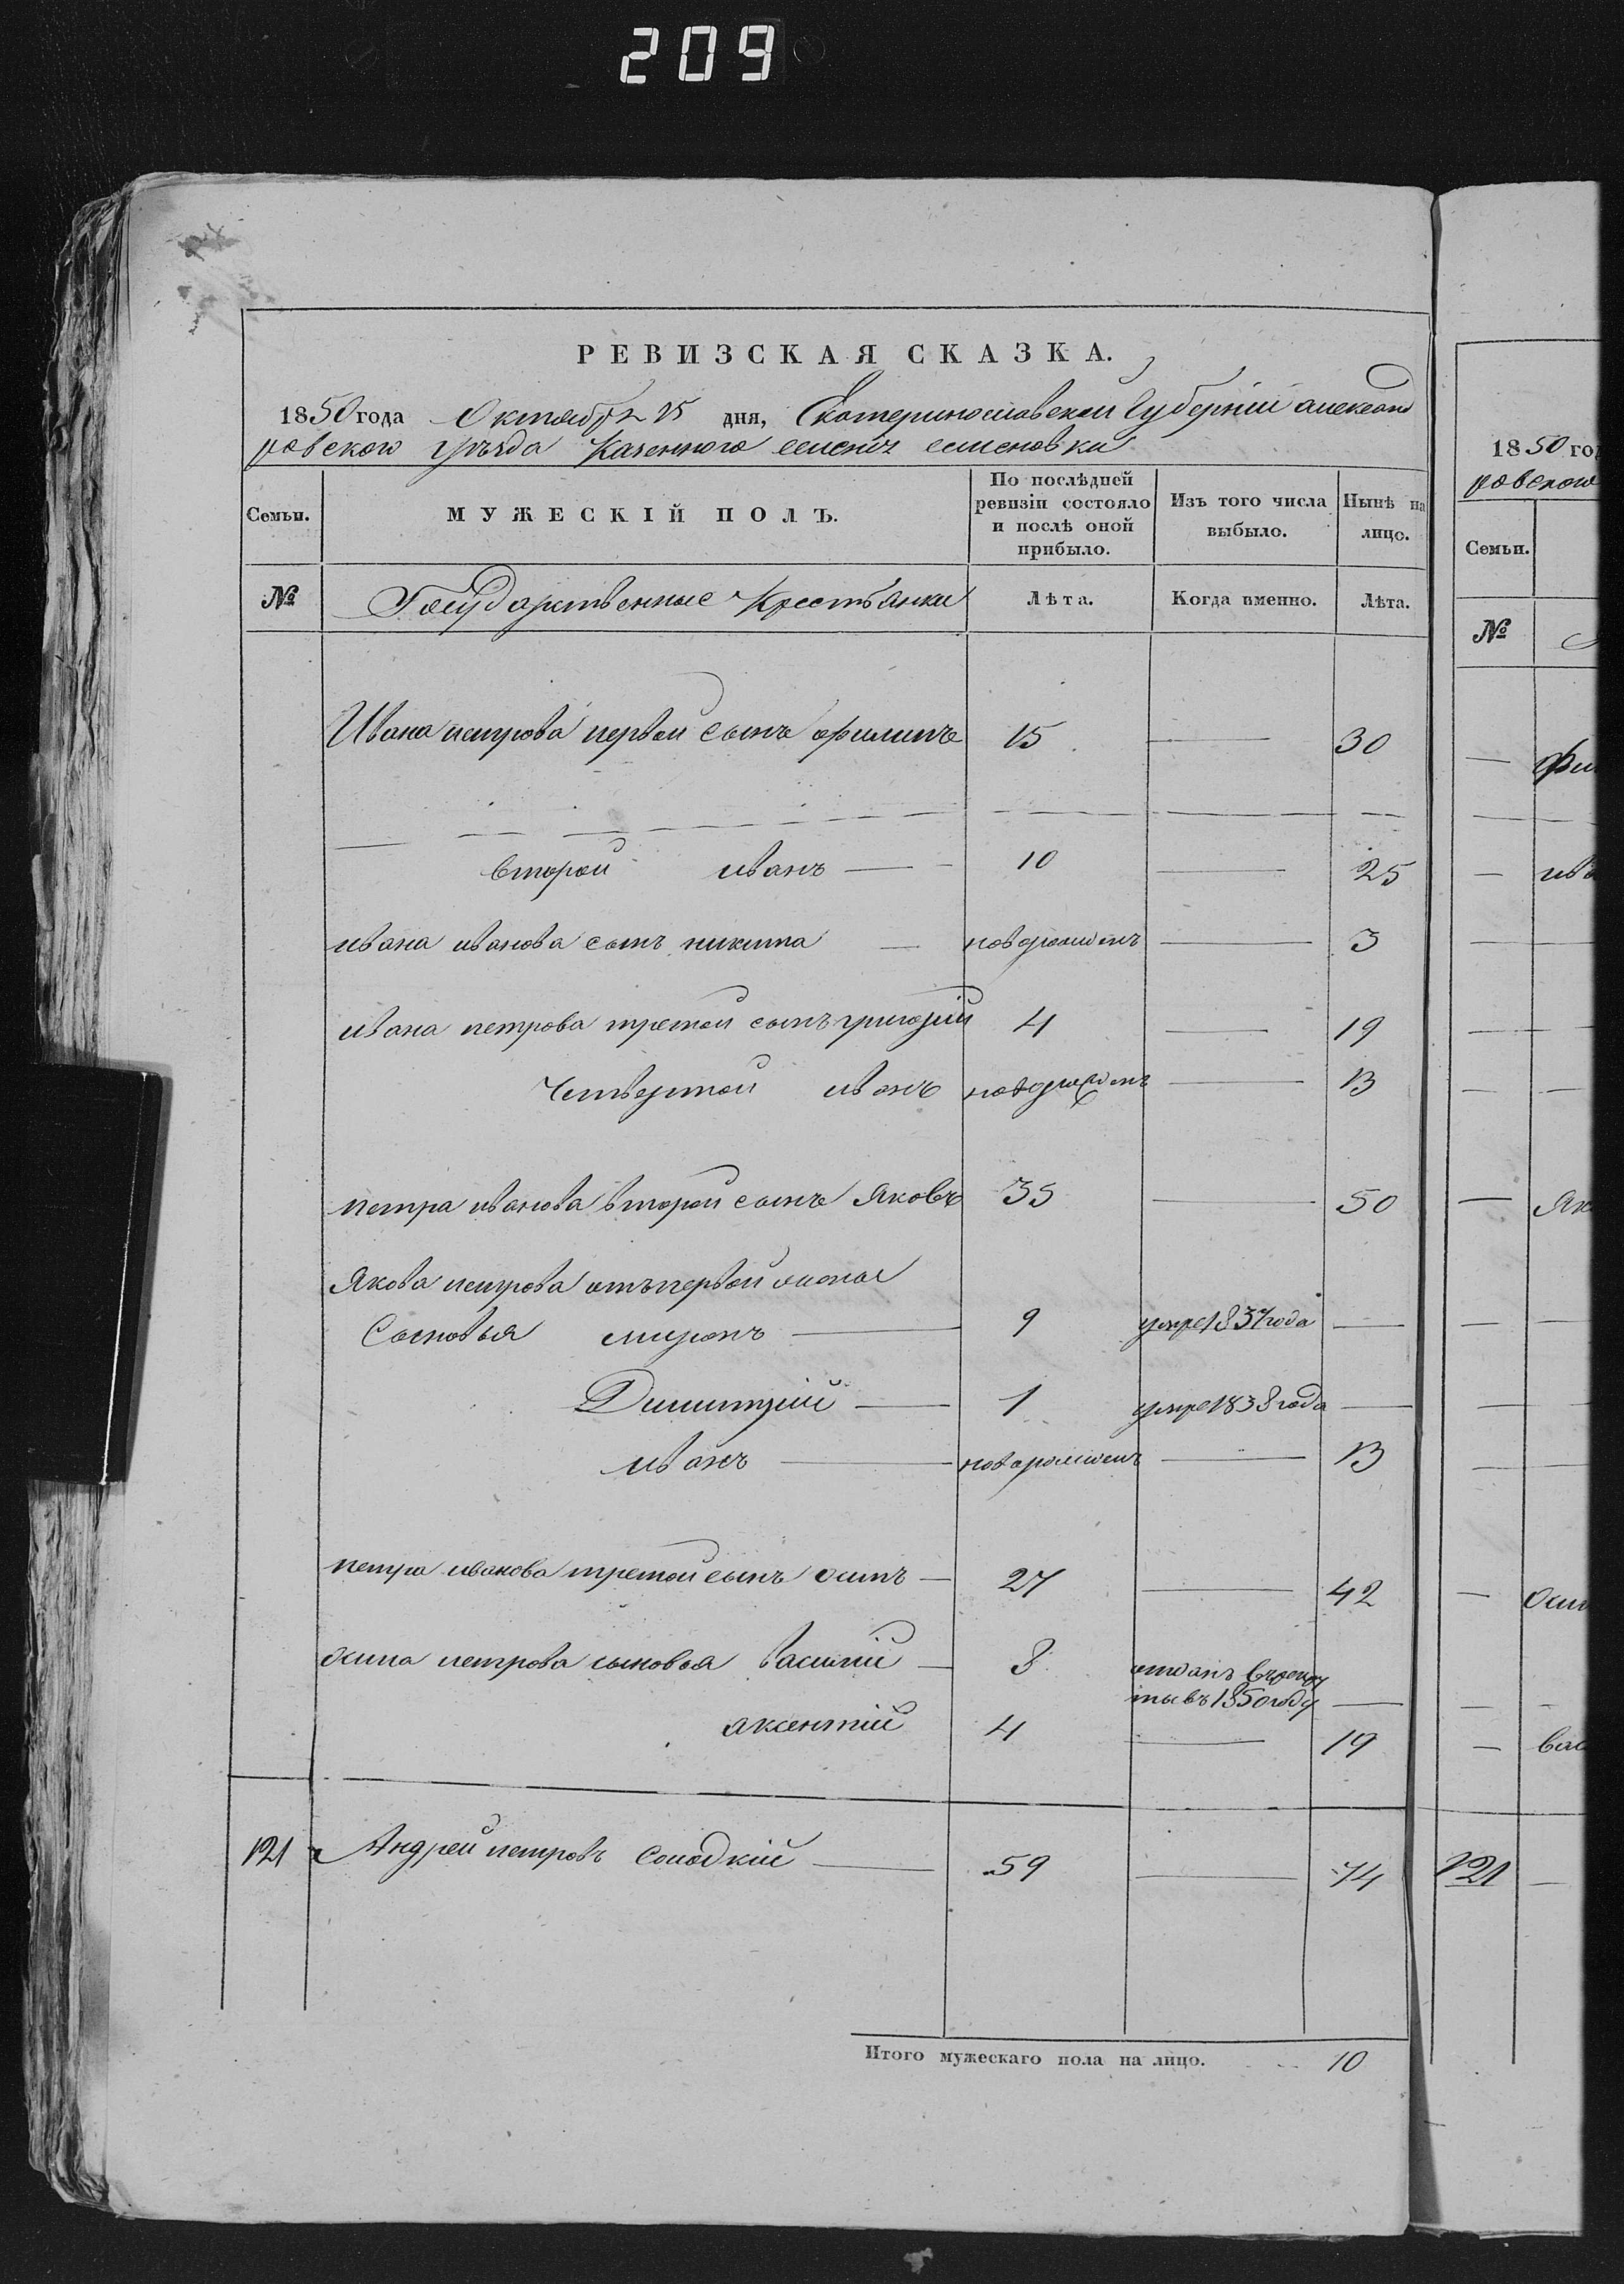 209
РЕВИЗСКАЯ СКАЗКА.
1850 года Октября 25 дня, Екатеринославской Губерніи александ
ровского уезда Казенного селенія семеновки
Семьи.
МУЖЕСКІЙ ПОЛЪ.
По послѣдней ревизіи состояло и послѣ оной прибыло.
Изъ того числа выбыло.
Нынѣ на лицо.
№ Государственные Крестьянки Лѣта. Когда именно. Лѣта.
Ивана петрова первой сынъ филипъ 15 — 30
второй иванъ — 10 — 25
ивана иванова сынъ никита — новорожденъ — 3
ивана петрова третой сынъ григорій 4 — 19
Четвертой иванъ новорожденъ — 13
петра иванова второй сынъ Яковъ 35 — 50
Якова петрова отъ первой жены
Сыновья миронъ — 9 умре 1837 года —
Димитрій — 1 умре 1838 года —
иванъ — новорожденъ — 13
петра иванова третой сынъ осипъ — 27 — 42
осипа петрова сыновья василій — 8 отданъ въ рекру
ты въ 1850 году —
аксентій 4 — 19
121 Андрей петровъ Солодкій — 59 — 74
Итого мужескаго пола на лицо. 10
1850 го
ровского
Семьи.
№
— Фи
— ива
— Як
— Оси
— вас
121 —